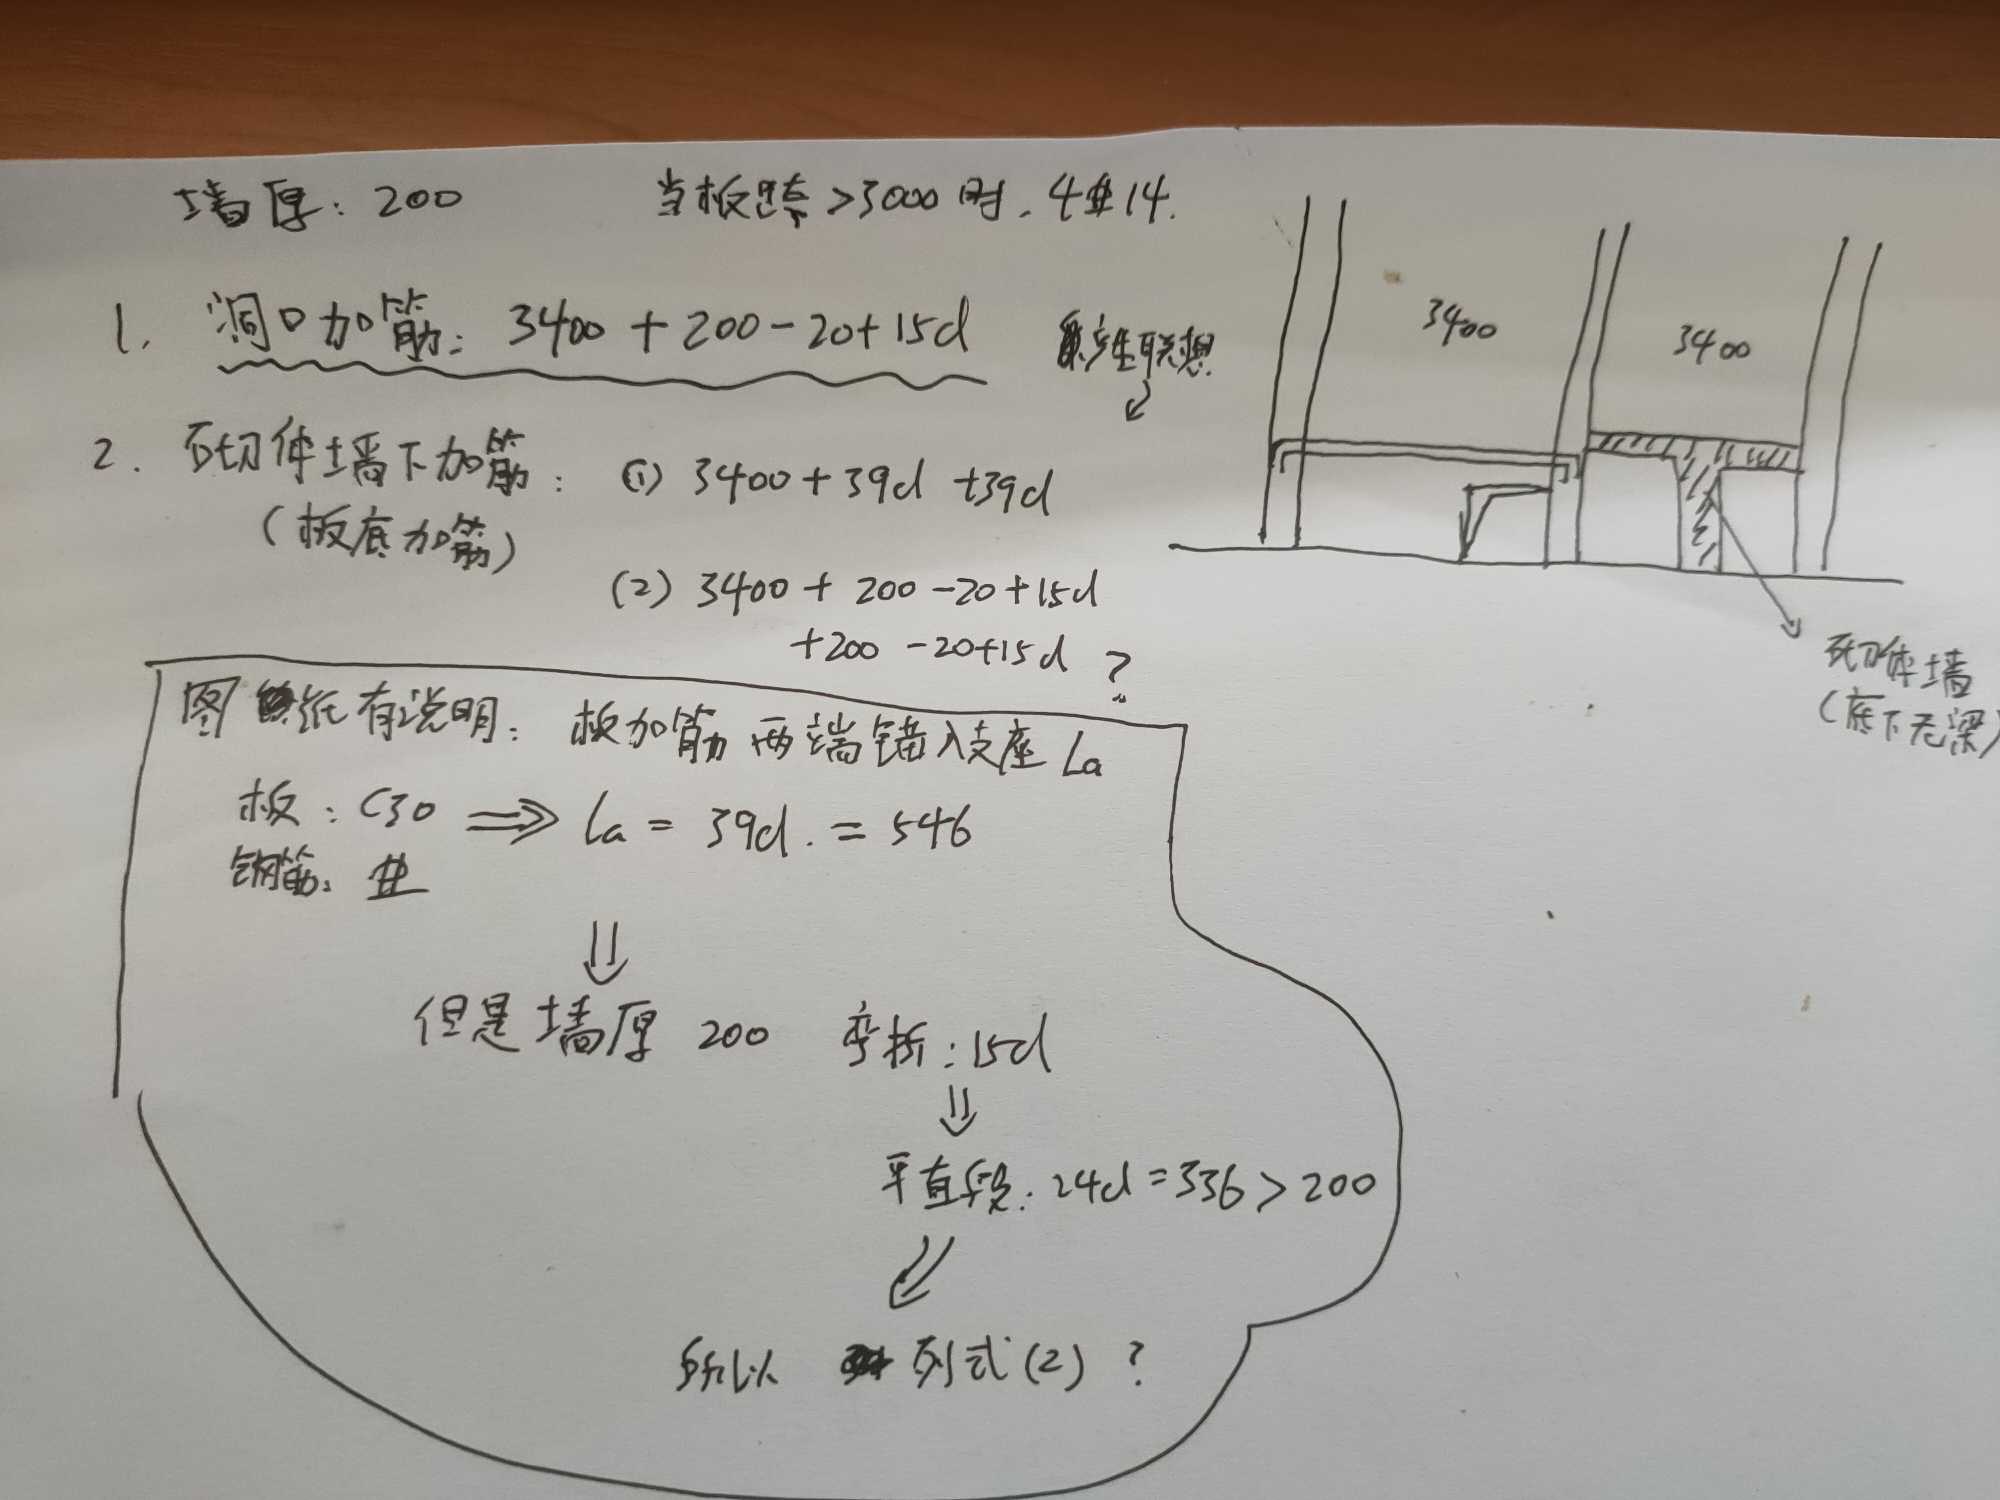 墙厚：200 当板跨>3000时，4⌽14.
1. 洞口加筋：3400+200-20+15d
2. 砌体墙下加筋：(1) 3400+39d+39d
(板底加筋)
(2) 3400+200-20+15d
+200-20+15d ?
联想
3400
3400
砌体墙
(底下无梁)
图纸有说明：板加筋两端锚入支座La
板：C30 ⇒ la=39d.=546
钢筋：
⇓
但是墙厚200 弯折：15d
⇓
平直段：24d=336>200
所以 列式(2)?